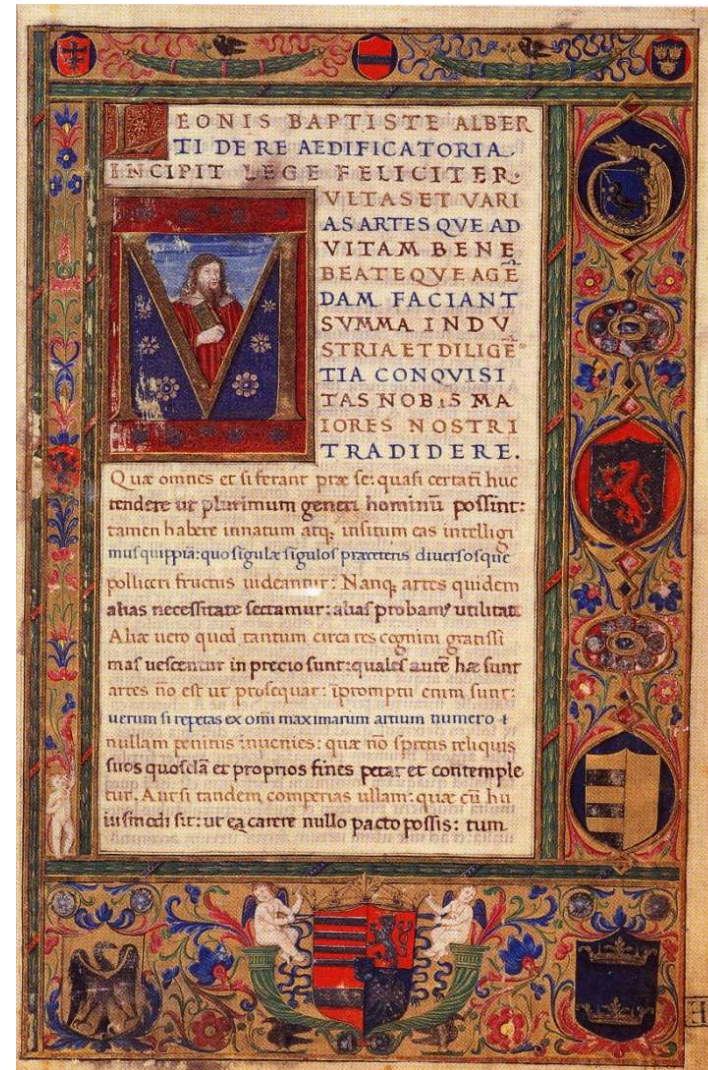 LEONIS BAPTISTE ALBER
TI DE RE AEDIFICATORIA.
INCIPIT LEGE FELICITER.
MVLTAS ET VARI
AS ARTES QVE AD
VITAM BENE
BEATEQVE AGĒ
DAM FACIANT
SVMMA INDV
STRIA ET DILIGĒ
TIA CONQVISI
TAS NOBIS MA
IORES NOSTRI
TRADIDERE.
Quæ omnes et si ferant præ se: quasi certatī huc
tendere ut plurimum generi hominū possint:
tamen habere innatum atq; insitum eas intelligi
mus quippiā: quo sīgulæ sīgulos præ ceteris diversosque
polliceri fructus uideantur: Nanq; artes quidem
alias necessitate sectamur: alias probam9 utilitate
Aliæ uero quod tantum circa res cognitu gratissi
mas uescentur in precio sunt: quales autē hæ sunt
artes nō est ut prosequar: īpromptu enim sunt:
uerum si repetas ex omī maximarum artium numero
nullam penitus inuenies: quæ nō spretis reliquis
suos quosdā et proprios fines petat et contemple
tur. Aut si tandem comperias ullam: quæ cū hu
iusmodi sit: ut ea carere nullo pacto possis: tum